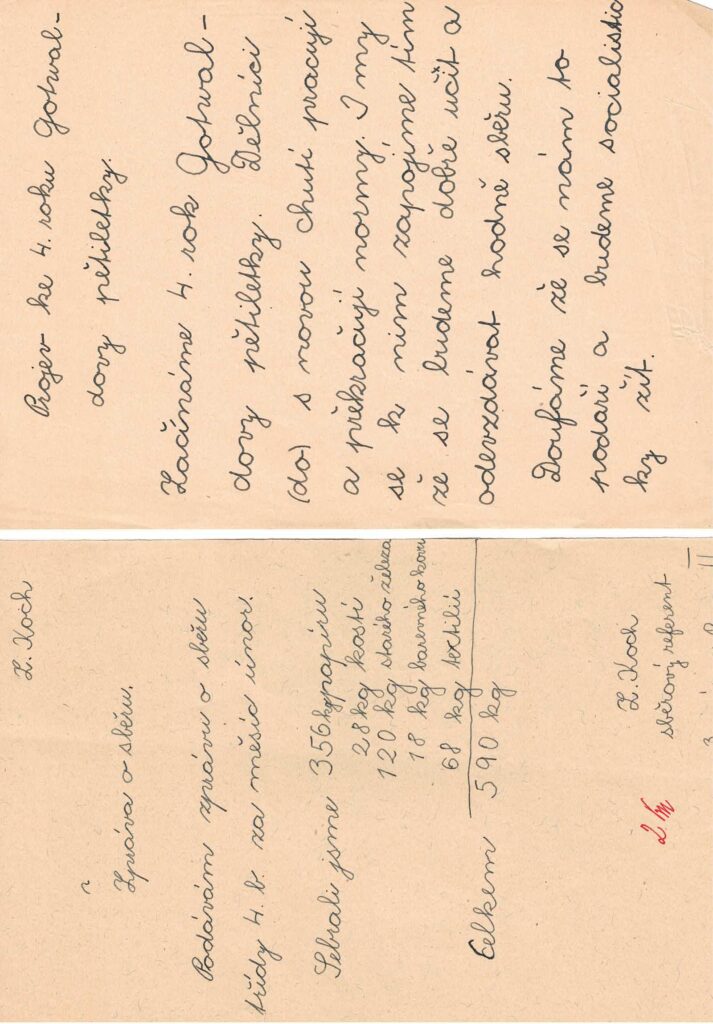 Projev ke 4. roku Gotwal-
dovy pětiletky.
Začínáme 4. rok Gotwal-
dovy pětiletky. Dělníci
(do) s novou chutí pracují
a překračují normy. I my
se k nim zapojíme tím
že se budeme dobře učit a
odevzdávat hodně sběru.
Doufáme že se nám to
podaří a budeme socialistic
ky žít.
Z. Koch
Zpráva o sběru.
Podávám zprávu o sběru
třídy 4. b. za měsíc únor.
Sebrali jsme 356 kg papíru
28 kg kostí
120 kg starého železa
18 kg barevného kovu
68 kg textilií
Celkem 590 kg
Z. Koch
sběrový referent